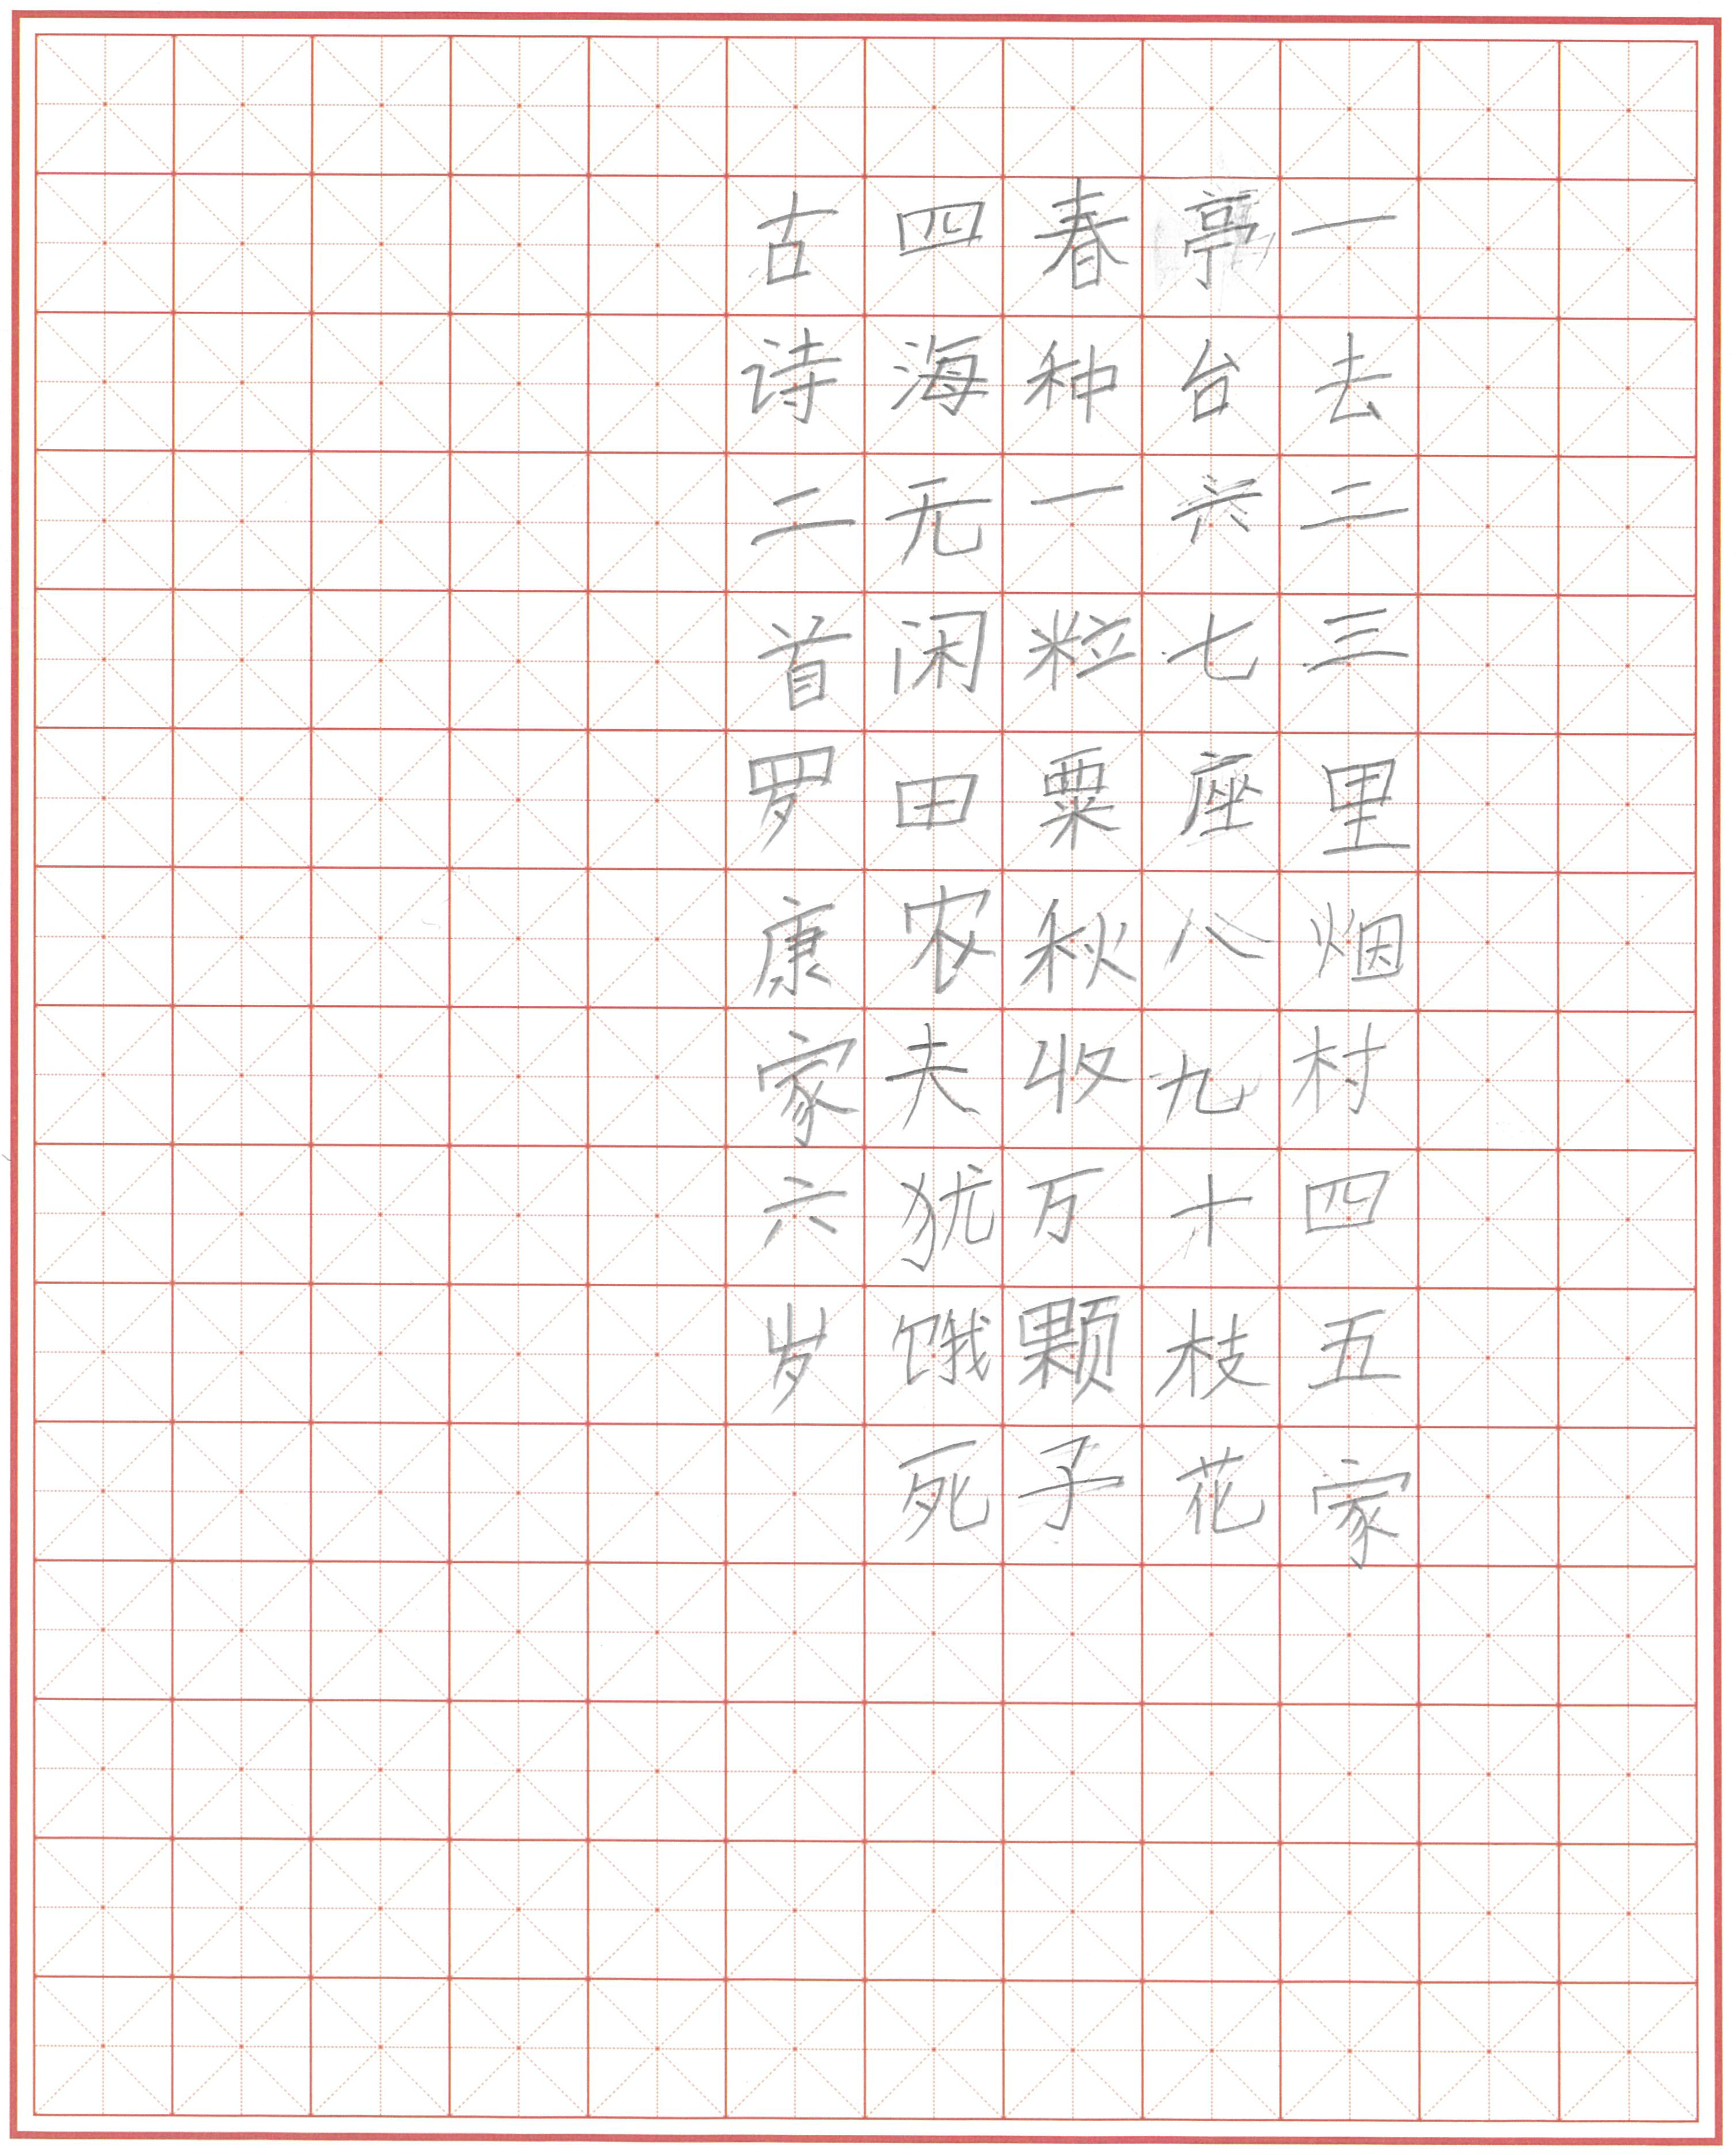 一去二三里烟村四五家
亭台六七座八九十枝花
春种一粒粟秋收万颗子
四海无闲田农夫犹饿死
古诗二首罗康家六岁